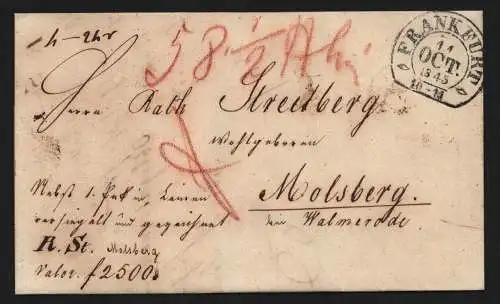 58 1/2
FRANKFURT
11
OCT.
1845
10-11
Herrn Rath Streitberg
Wohlgeboren
Molsberg.
bei Walmerode
Nebst 1. Pak in Leinen
versiegelt und gezeichnet
R. St. Molsberg
Valor. f 2500.